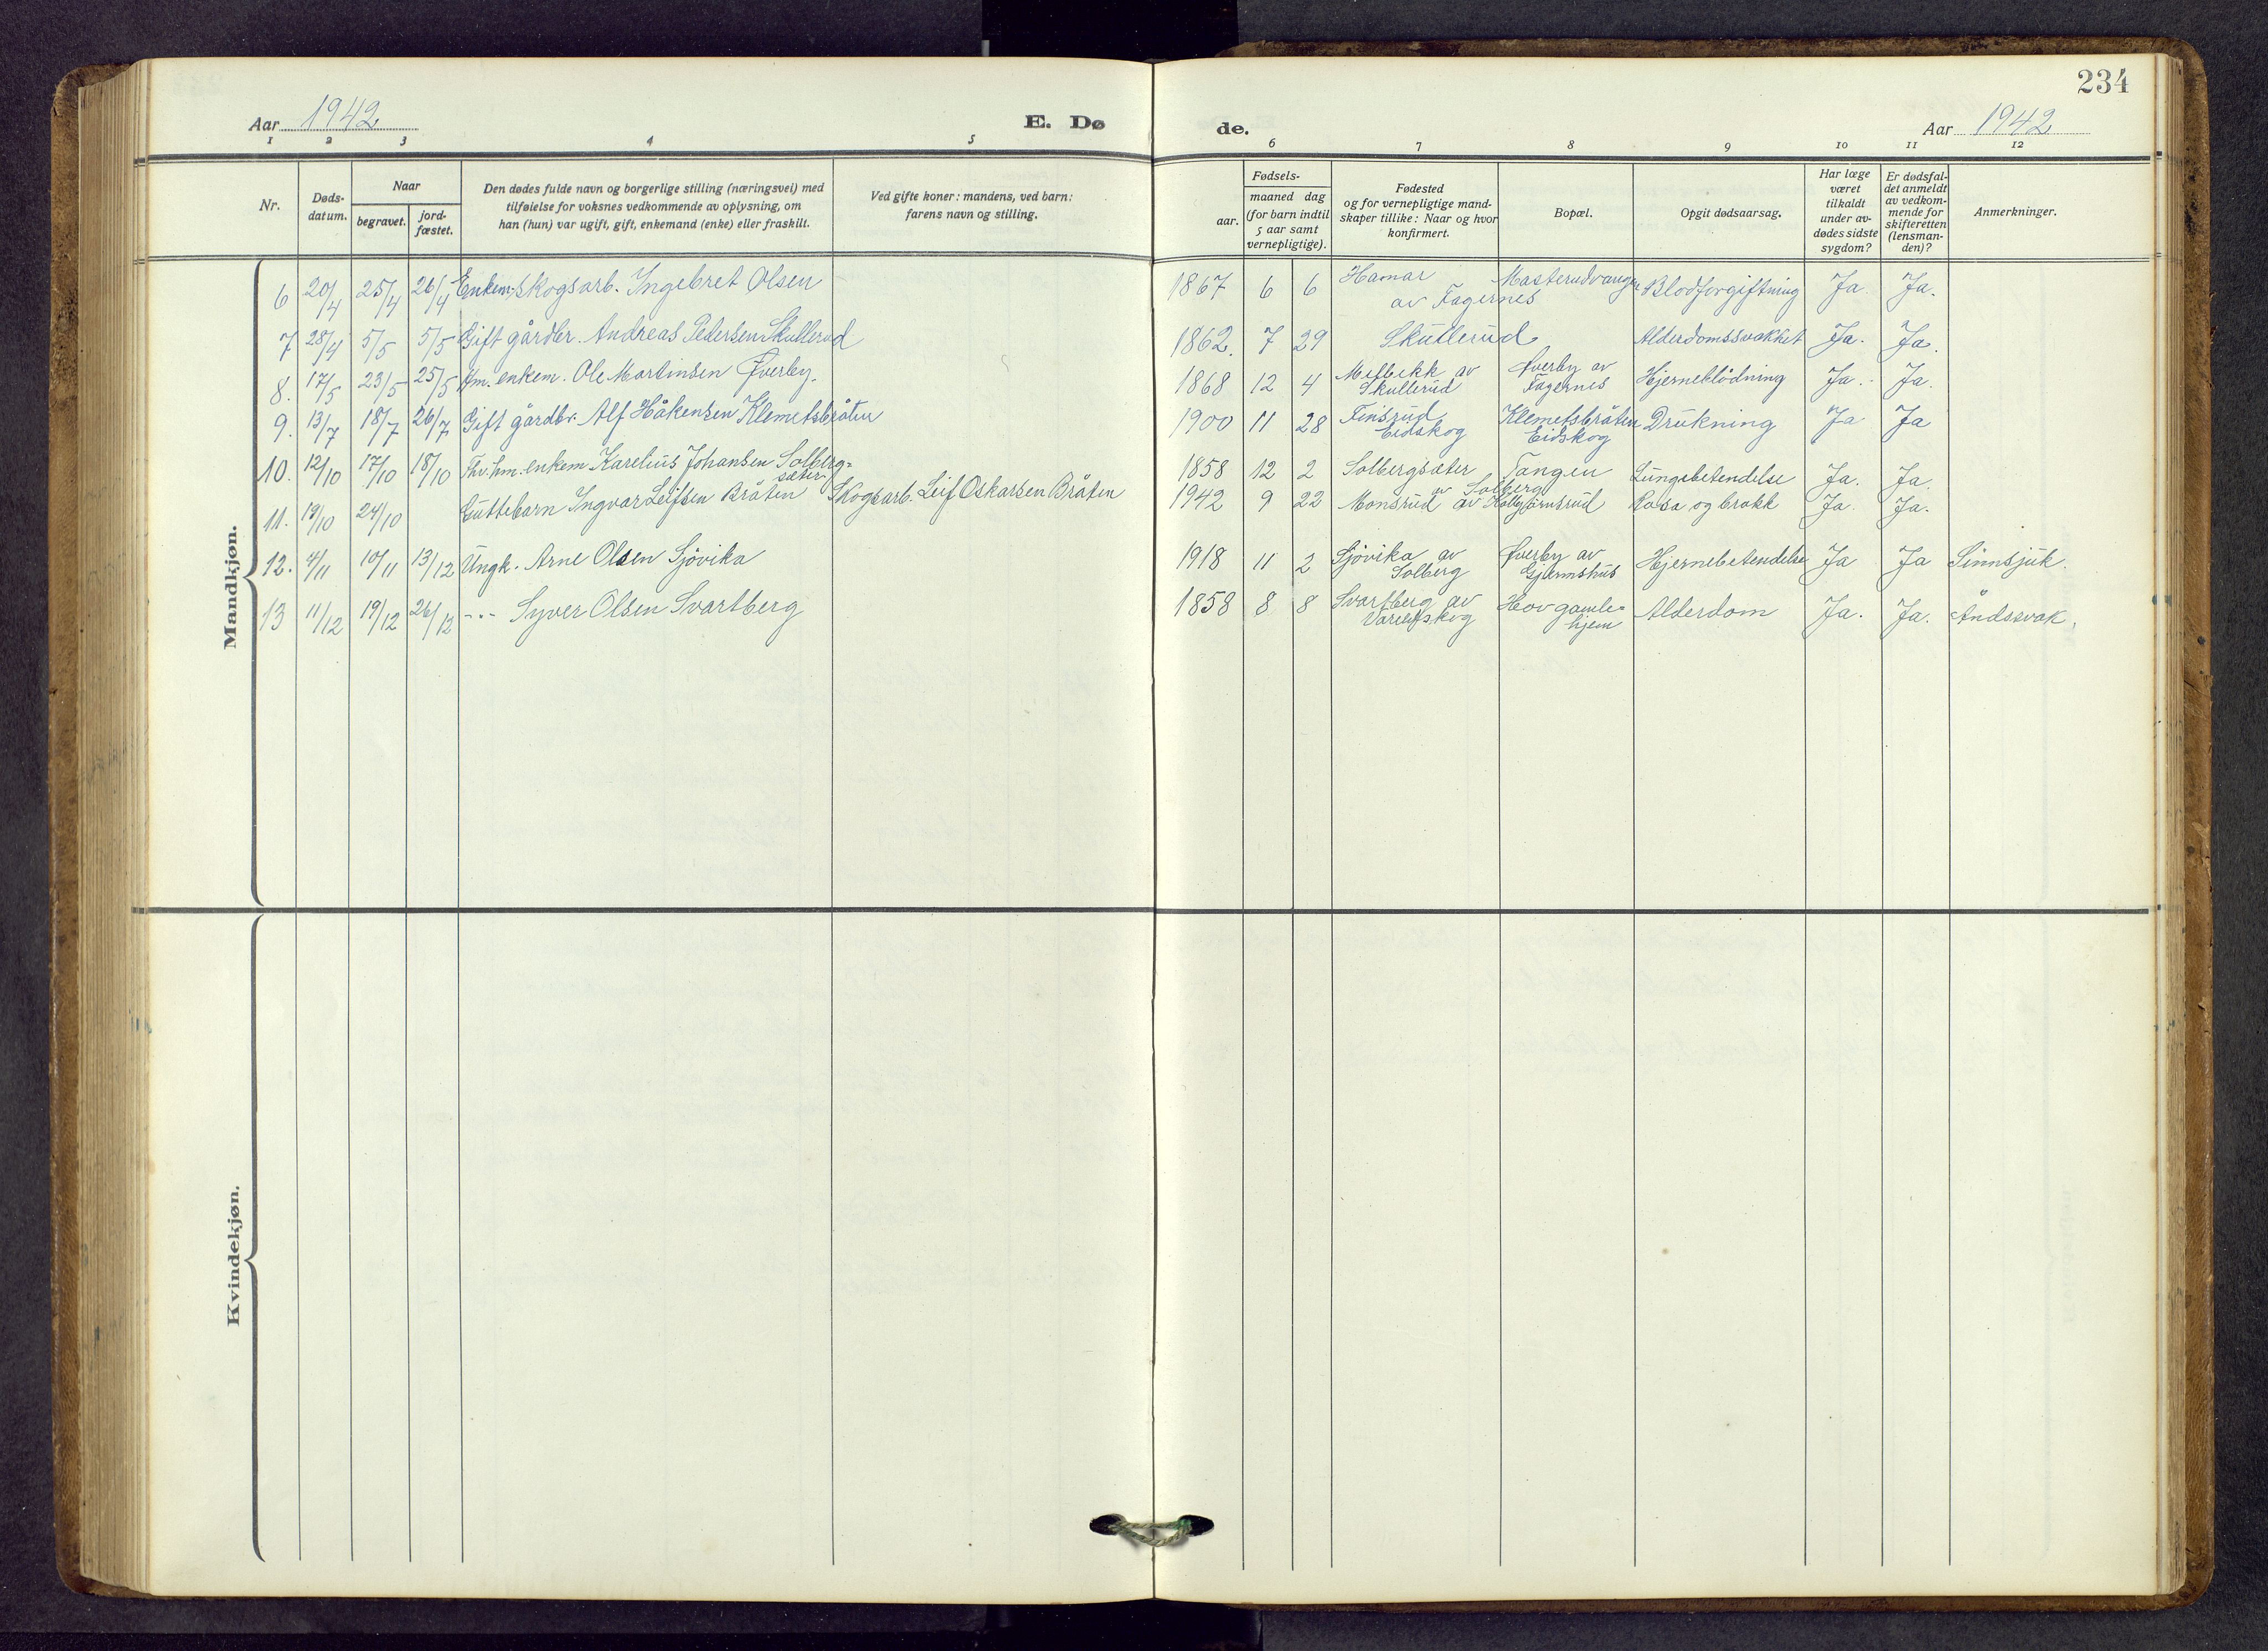 234
Aar 1942 E. Dø de. Aar 1942
1 2 3 4 5 6 7 8 9 10 11 12
Nr.
Døds-
datum.
Naar
begravet.
jord-
fæstet.
Den dødes fulde navn og borgerlige stilling (næringsvei) med
tilføielse for voksnes vedkommende av oplysning, om
han (hun) var ugift, gift, enkemand (enke) eller fraskilt.
Ved gifte koner: mandens, ved barn:
farens navn og stilling.
Fødsels-
aar.
maaned dag
(for barn indtil
5 aar samt
vernepligtige).
Fødested
og for vernepligtige mand-
skaper tillike: Naar og hvor
konfirmert.
Bopæl.
Opgit dødsaarsag.
Har læge
været
tilkaldt
under av-
dødes sidste
sygdom?
Er dødsfal-
det anmeldt
av vedkom-
mende for
skifteretten
(lensman-
den)?
Anmerkninger.
Mandkjøn.
6 20/4 25/4 26/4 Enkem. skogsarb. Ingebret Olsen 1867 6 6 Hamar Masterudvangen Blodforgiftning Ja. Ja.
av Fagernes
7 28/4 5/5 5/5 Gift gårdbr. Andreas Pedersen Skullerud 1862. 7 29 Skullerud Alderdomssvakhet Ja. Ja.
8. 17/5 23/5 25/5 Hm. enkem. Ole Martinsen Øverby. 1868 12 4 Melbekk av Øverby av Hjerneblødning Ja. Ja.
Skullerud Fagernes
9. 13/7 18/7 26/7 Gift gårdbr. Alf Håkensen Klemetsbråten 1900 11 28 Finsrud Klemetsbråten Drukning Ja Ja
Eidskog Eidskog
10. 12/10 17/10 18/10 Fhv. hm. enkem Karelius Johansen Solberg- 1858 12 2 Solbergsæter Tangen Lungebetendelse Ja. Ja.
sæter av Solberg
11. 19/10 24/10 Guttebarn Ingvar Leifsen Bråten Skogsarb. Leif Oskarsen Bråten 1942 9 22 Monsrud av Kolbjørnsrud Rosa og brokk Ja. Ja.
12. 4/11 10/11 13/12 Ungk. Arne Olsen Sjövika 1918 11 2 Sjövika av Øverby av Hjernebetendelse Ja Ja Sinnsjuk.
Solberg Gjermshus
13 11/12 19/12 26/12 -"- Syver Olsen Svartberg 1858 8 8 Svartberg av Hov gamle- Alderdom Ja. Ja. Åndssvak.
Varaldskog hjem
Kvindekjøn.